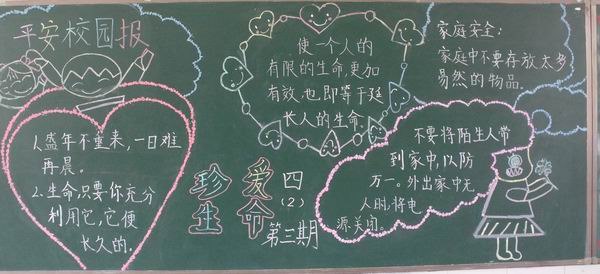 平安校园报
1.盛年不重来,一日难
再晨。
2.生命只要你充分
利用它,它便
长久的.
使一个人的
有限的生命,更加
有效,也即等于延
长人的生命.
珍爱
生命
四
(2)
第三期
家庭安全:
家庭中不要存放太多
易然的物品.
不要将陌生人带
到家中,以防
万一。外出家中无
人时,将电
源关闭。